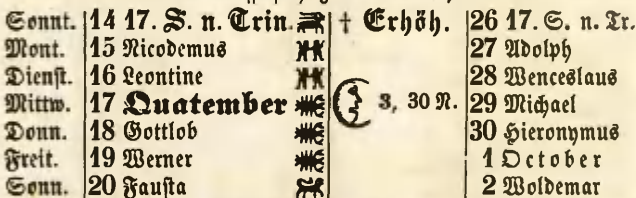 Sonnt. 14 17. S. n. Trin. † Erhöh. 26 17. S. n. Tr.
Mont. 15 Nicodemus 27 Adolph
Dienst. 16 Leontine 28 Wenceslaus
Mittw. 17 Quatember 3, 30 N. 29 Michael
Donn. 18 Gottlob 30 Hieronymus
Freit. 19 Werner 1 October
Sonn. 20 Fausta 2 Woldemar